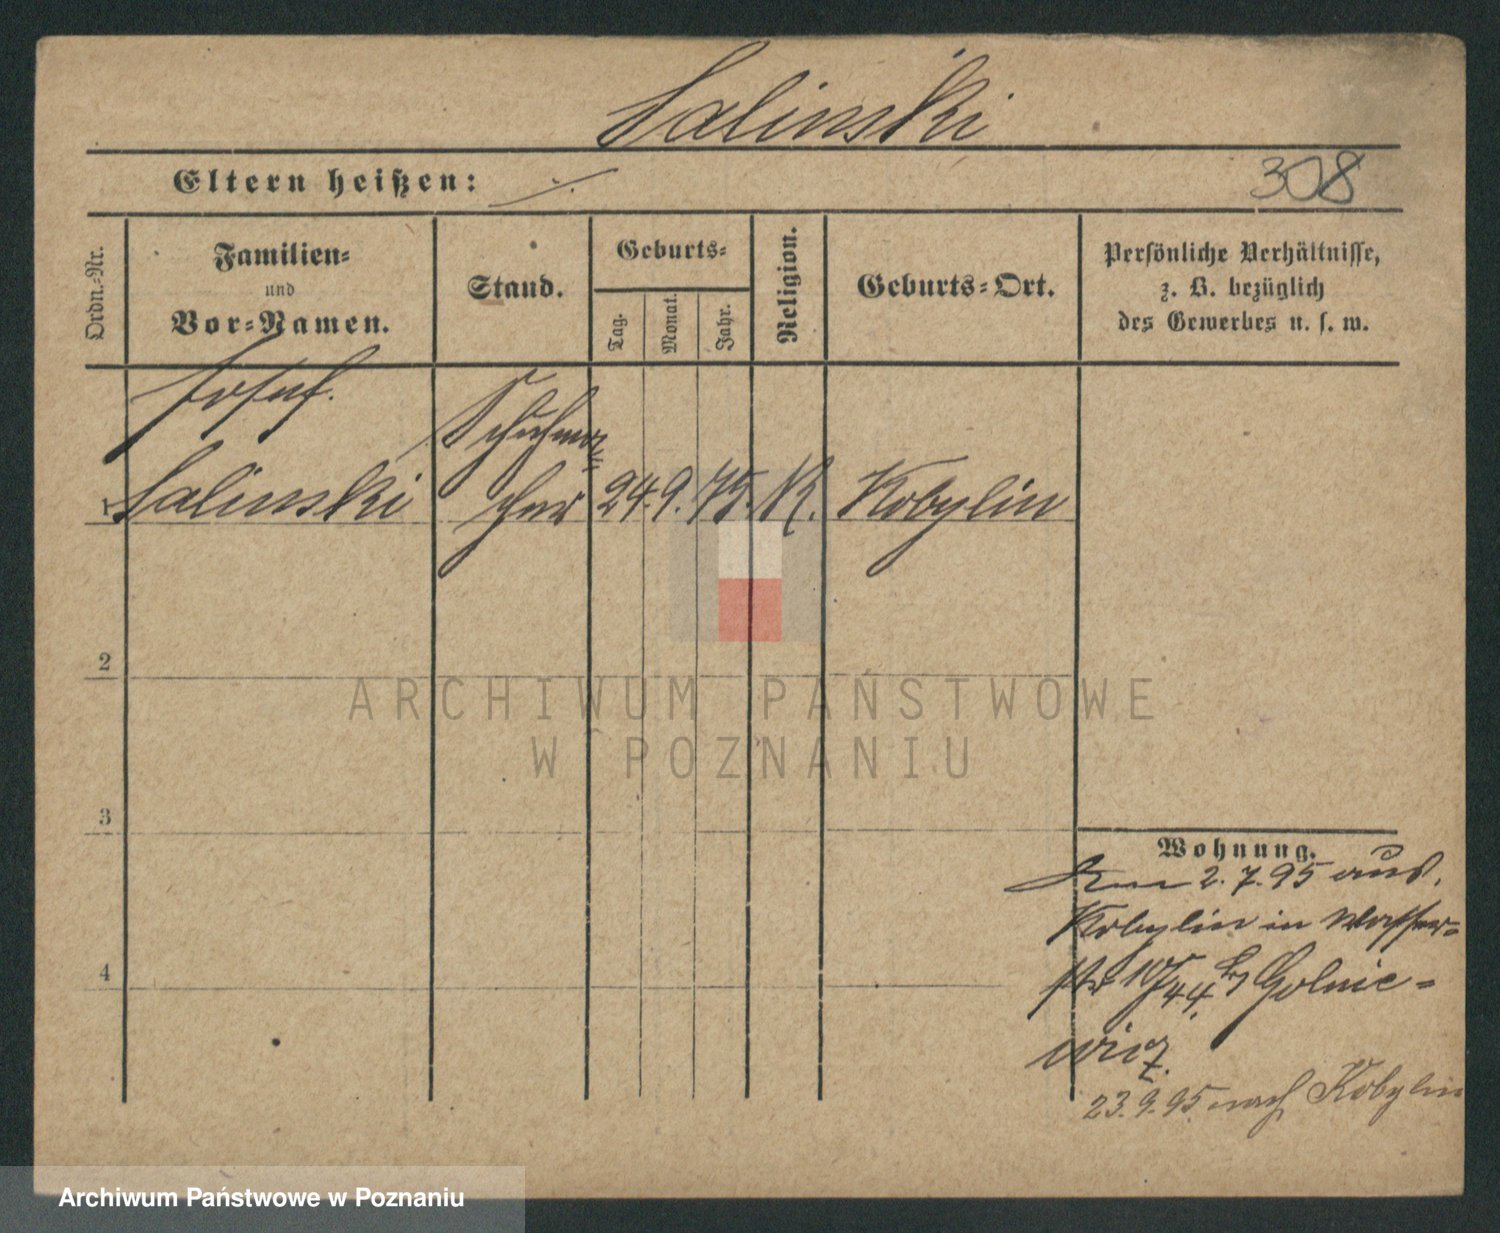 Salinski
Eltern heißen: ./.
308
Ordn.-Nr.
Familien-
und
Vor-Namen.
Stand.
Geburts-
Tag.
Monat.
Jahr.
Religion.
Geburts-Ort.
Persönliche Verhältnisse,
z. B. bezüglich
des Gewerbes u. s. w.
Josef
Schuhma
1 Salinski cher 24. 9. 75. K. Kobylin
2
3
4
Wohnung.
2. 7. 95 aus
Kobylin in Wasser-
str 10/44. b/ Golnie-
wicz.
23. 9. 95 nach Kobylin
ARCHIWUM PAŃSTWOWE
W POZNANIU
Archiwum Państwowe w Poznaniu